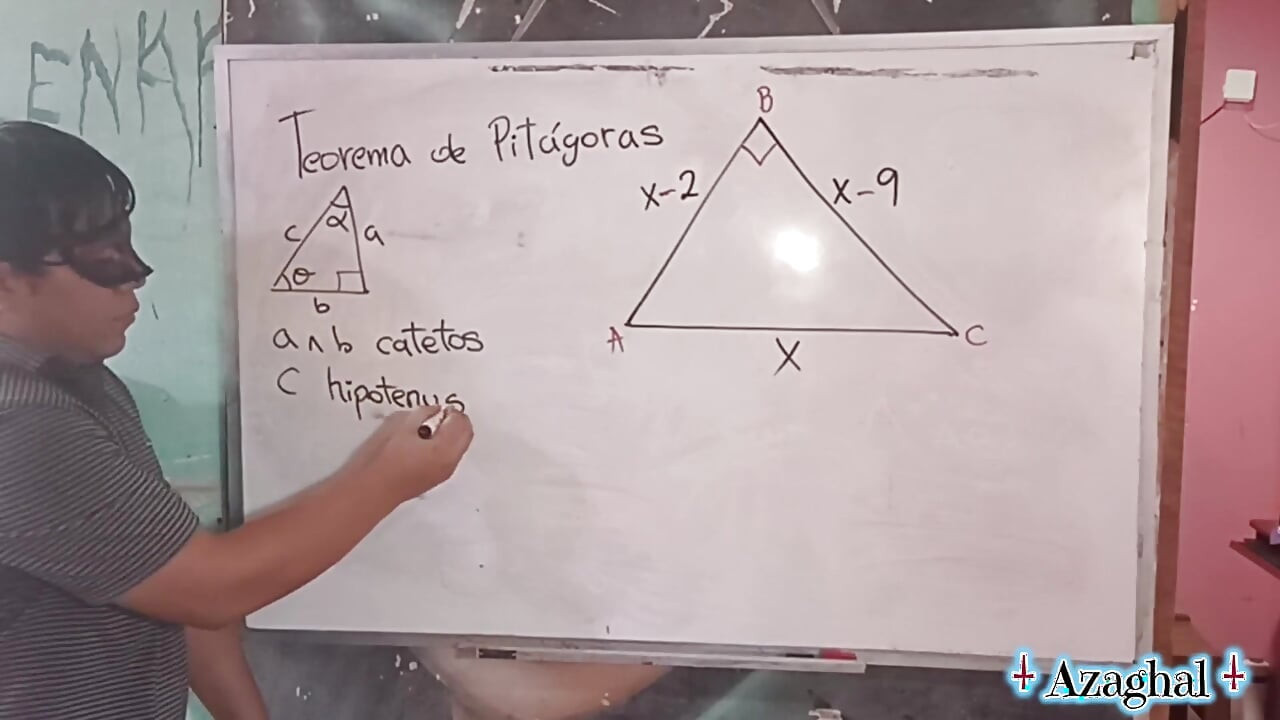 ENKA
Teorema de Pitágoras
α
c
a
θ
b
a ∧ b catetos
C hipotenus
B
x-2
x-9
A
C
X
Azaghal